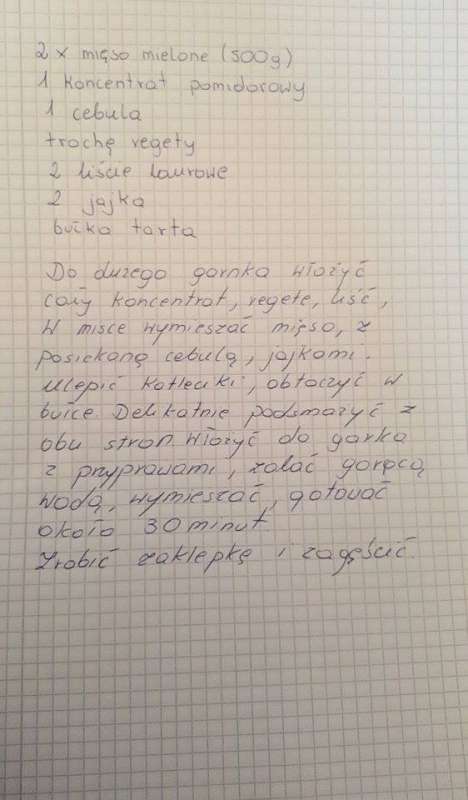 2 x mięso mielone (500g)
1 koncentrat pomidorowy
1 cebula
trochę vegety
2 liście laurowe
2 jajka
bułka tarta
Do dużego garnka włożyć
cały koncentrat, vegete, liść,
W misce wymieszać mięso, z
posiekaną cebulą, jajkami.
Ulepić kotleciki, obtoczyć w
bułce. Delikatnie podsmażyć z
obu stron. Włożyć do garka
z przyprawami, zalać gorącą
wodą, wymieszać, gotować
około 30 minut.
Zrobić zaklepkę i zagęścić.